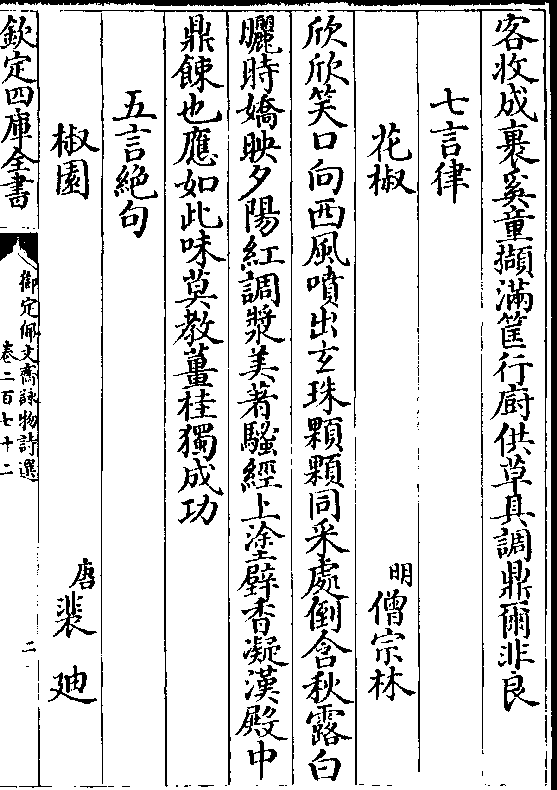 客收成裹奚童擷滿筐行廚供草具調鼎爾非良
七言律
花椒
明僧宗林
欣欣笑口向西風噴出玄珠顆顆同采處倒含秋露白
曬時嬌映夕陽紅調漿美著騷經上塗壁香凝漢殿中
鼎餗也應如此味莫教薑桂獨成功
五言絶句
椒園
唐裴廸
欽定四庫全書
御定佩文齋詠物詩選
卷二百七十二
二